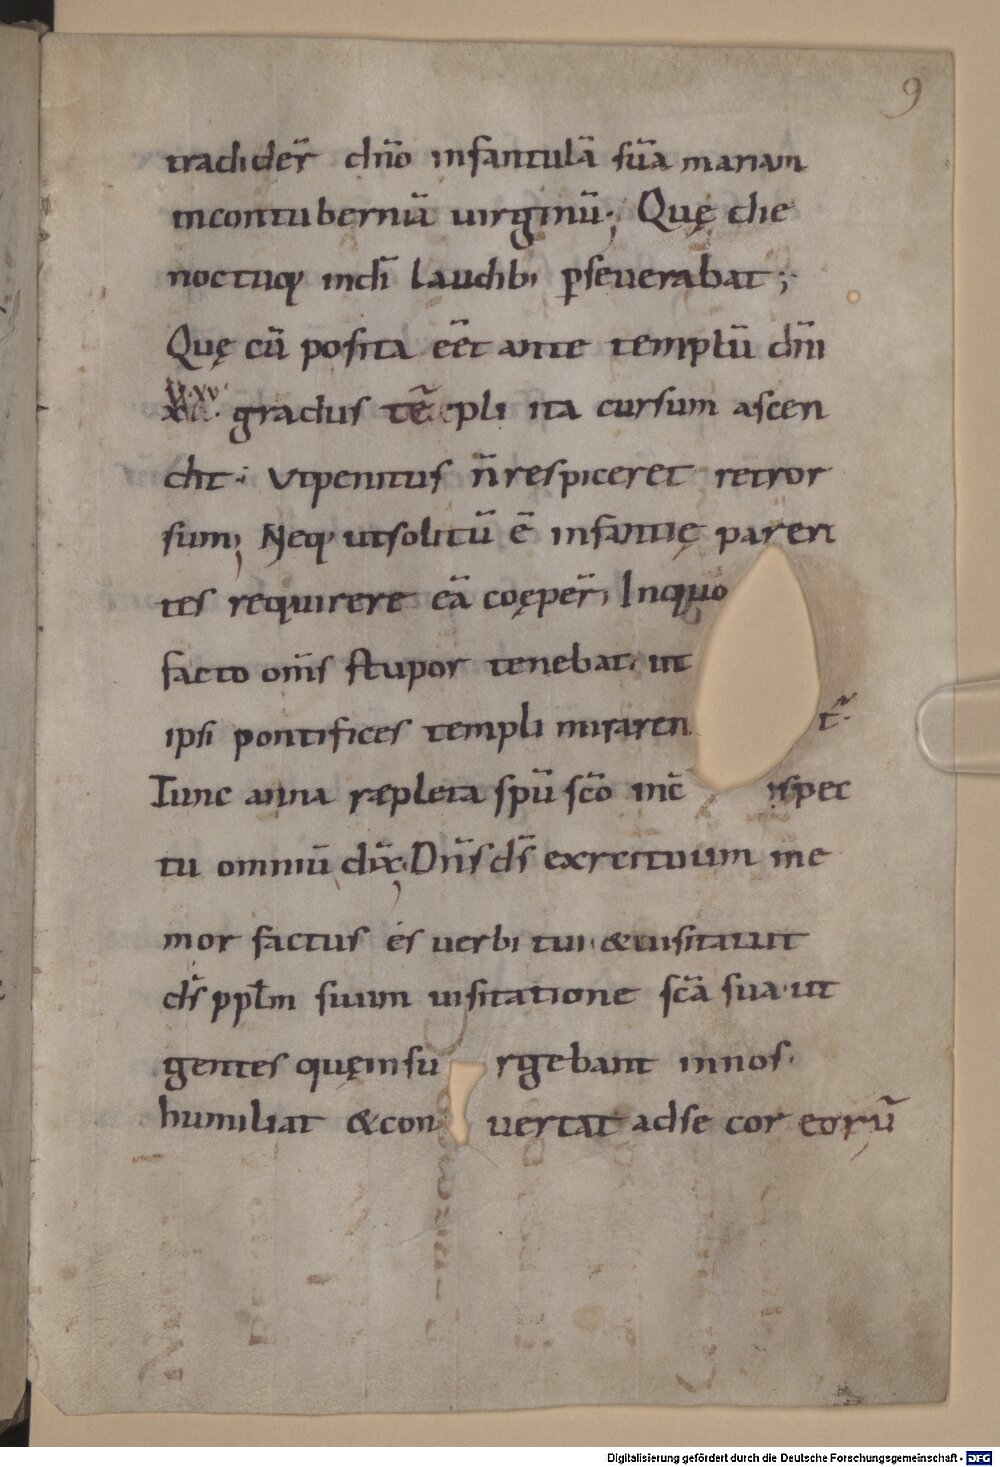 9
tradider̄ dn̄o infantulā sūa mariam
incontuberniū uirginū·; Quę die
noctuq; indī laudib; p̱seuerabat;·
Quę cū posita eēt ante templū dn̄i
VI·XV·
gradus tēpli ita cursum ascen
dit·; Vtpenitus n̄respiceret retror
sum; Neq; utsolitū ē infantię paren
tes requirere eā coęper̄; Inquo
facto om̄s stupor tenebat· ut
ipsi pontifices templi miraren t̄·
Tunc anna ræpleta spū scō inc̄ nspec
tu omniū dix̄; Dn̄s ds̄ exercituum me
mor factus es uerbi tui· &uisitauit
ds̄ pplm̄ suum uisitatione scā sua·ut
gentes quęinsu rgebant innos·
humiliat &con uertat adse cor eorū
Digitalisierung gefördert durch die Deutsche Forschungsgemeinschaft - DFG